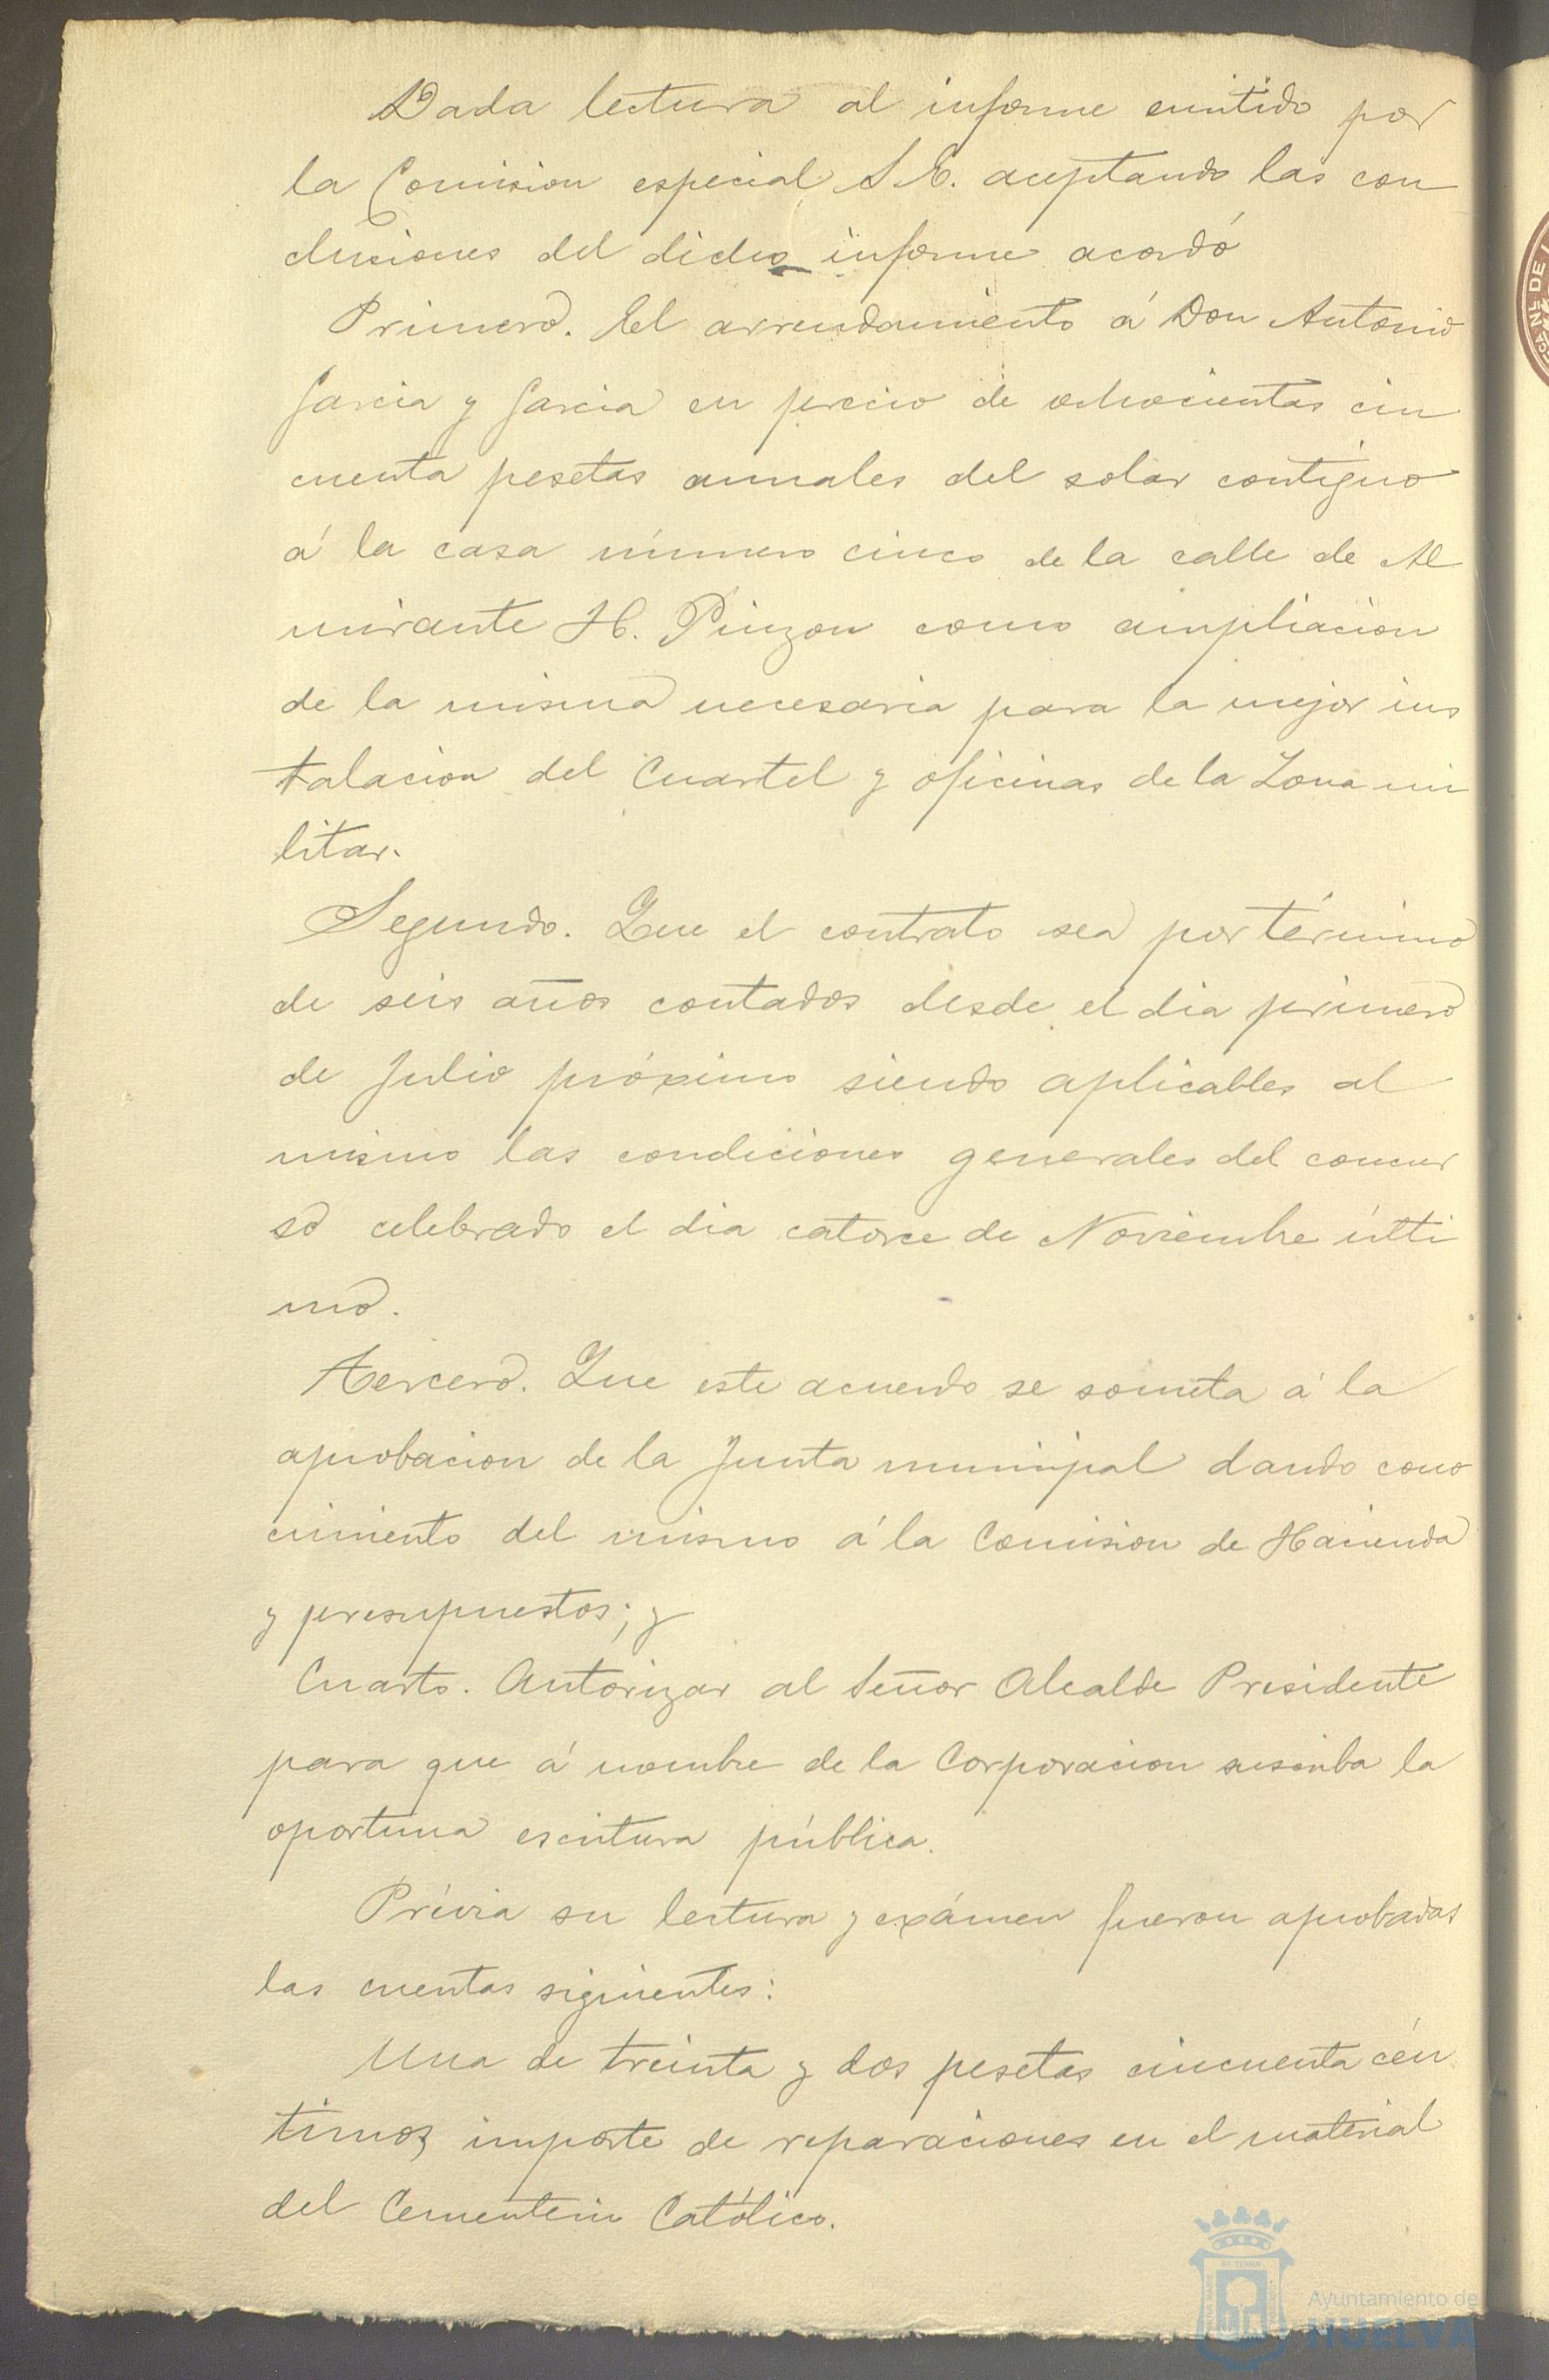 Dada lectura al informe emitido por
la Comision especial S. E. aceptando las con
clusiones del dicho informe acordó
Primero. El arrendamiento á Don Antonio
Garcia y Garcia en precio de ochocientas cin
cuenta pesetas anuales del solar contiguo
á la casa número cinco de la calle de Al
mirante H. Pinzon como ampliacion
de la misma necesaria para la mejor ins
talacion del Cuartel y oficinas de la Zona mi
litar.
Segundo. Que el contrato sea por término
de seis años contados desde el dia primero
de Julio próximo siendo aplicables al
mismo las condiciones generales del concur
so celebrado el dia catorce de Noviembre últi
mo.
Tercero. Que este acuerdo se someta á la
aprobacion de la Junta municipal dando cono
cimiento del mismo á la Comision de Hacienda
y presupuestos; y
Cuarto. Autorizar al Señor Alcalde Presidente
para que á nombre de la Corporacion suscriba la
oportuna escritura pública.
Prévia su lectura y exámen fueron aprobadas
las cuentas siguientes:
Una de treinta y dos pesetas cincuenta cén
timos importe de reparaciones en el material
del Cementerio Católico.
Ayuntamiento de
HUELVA